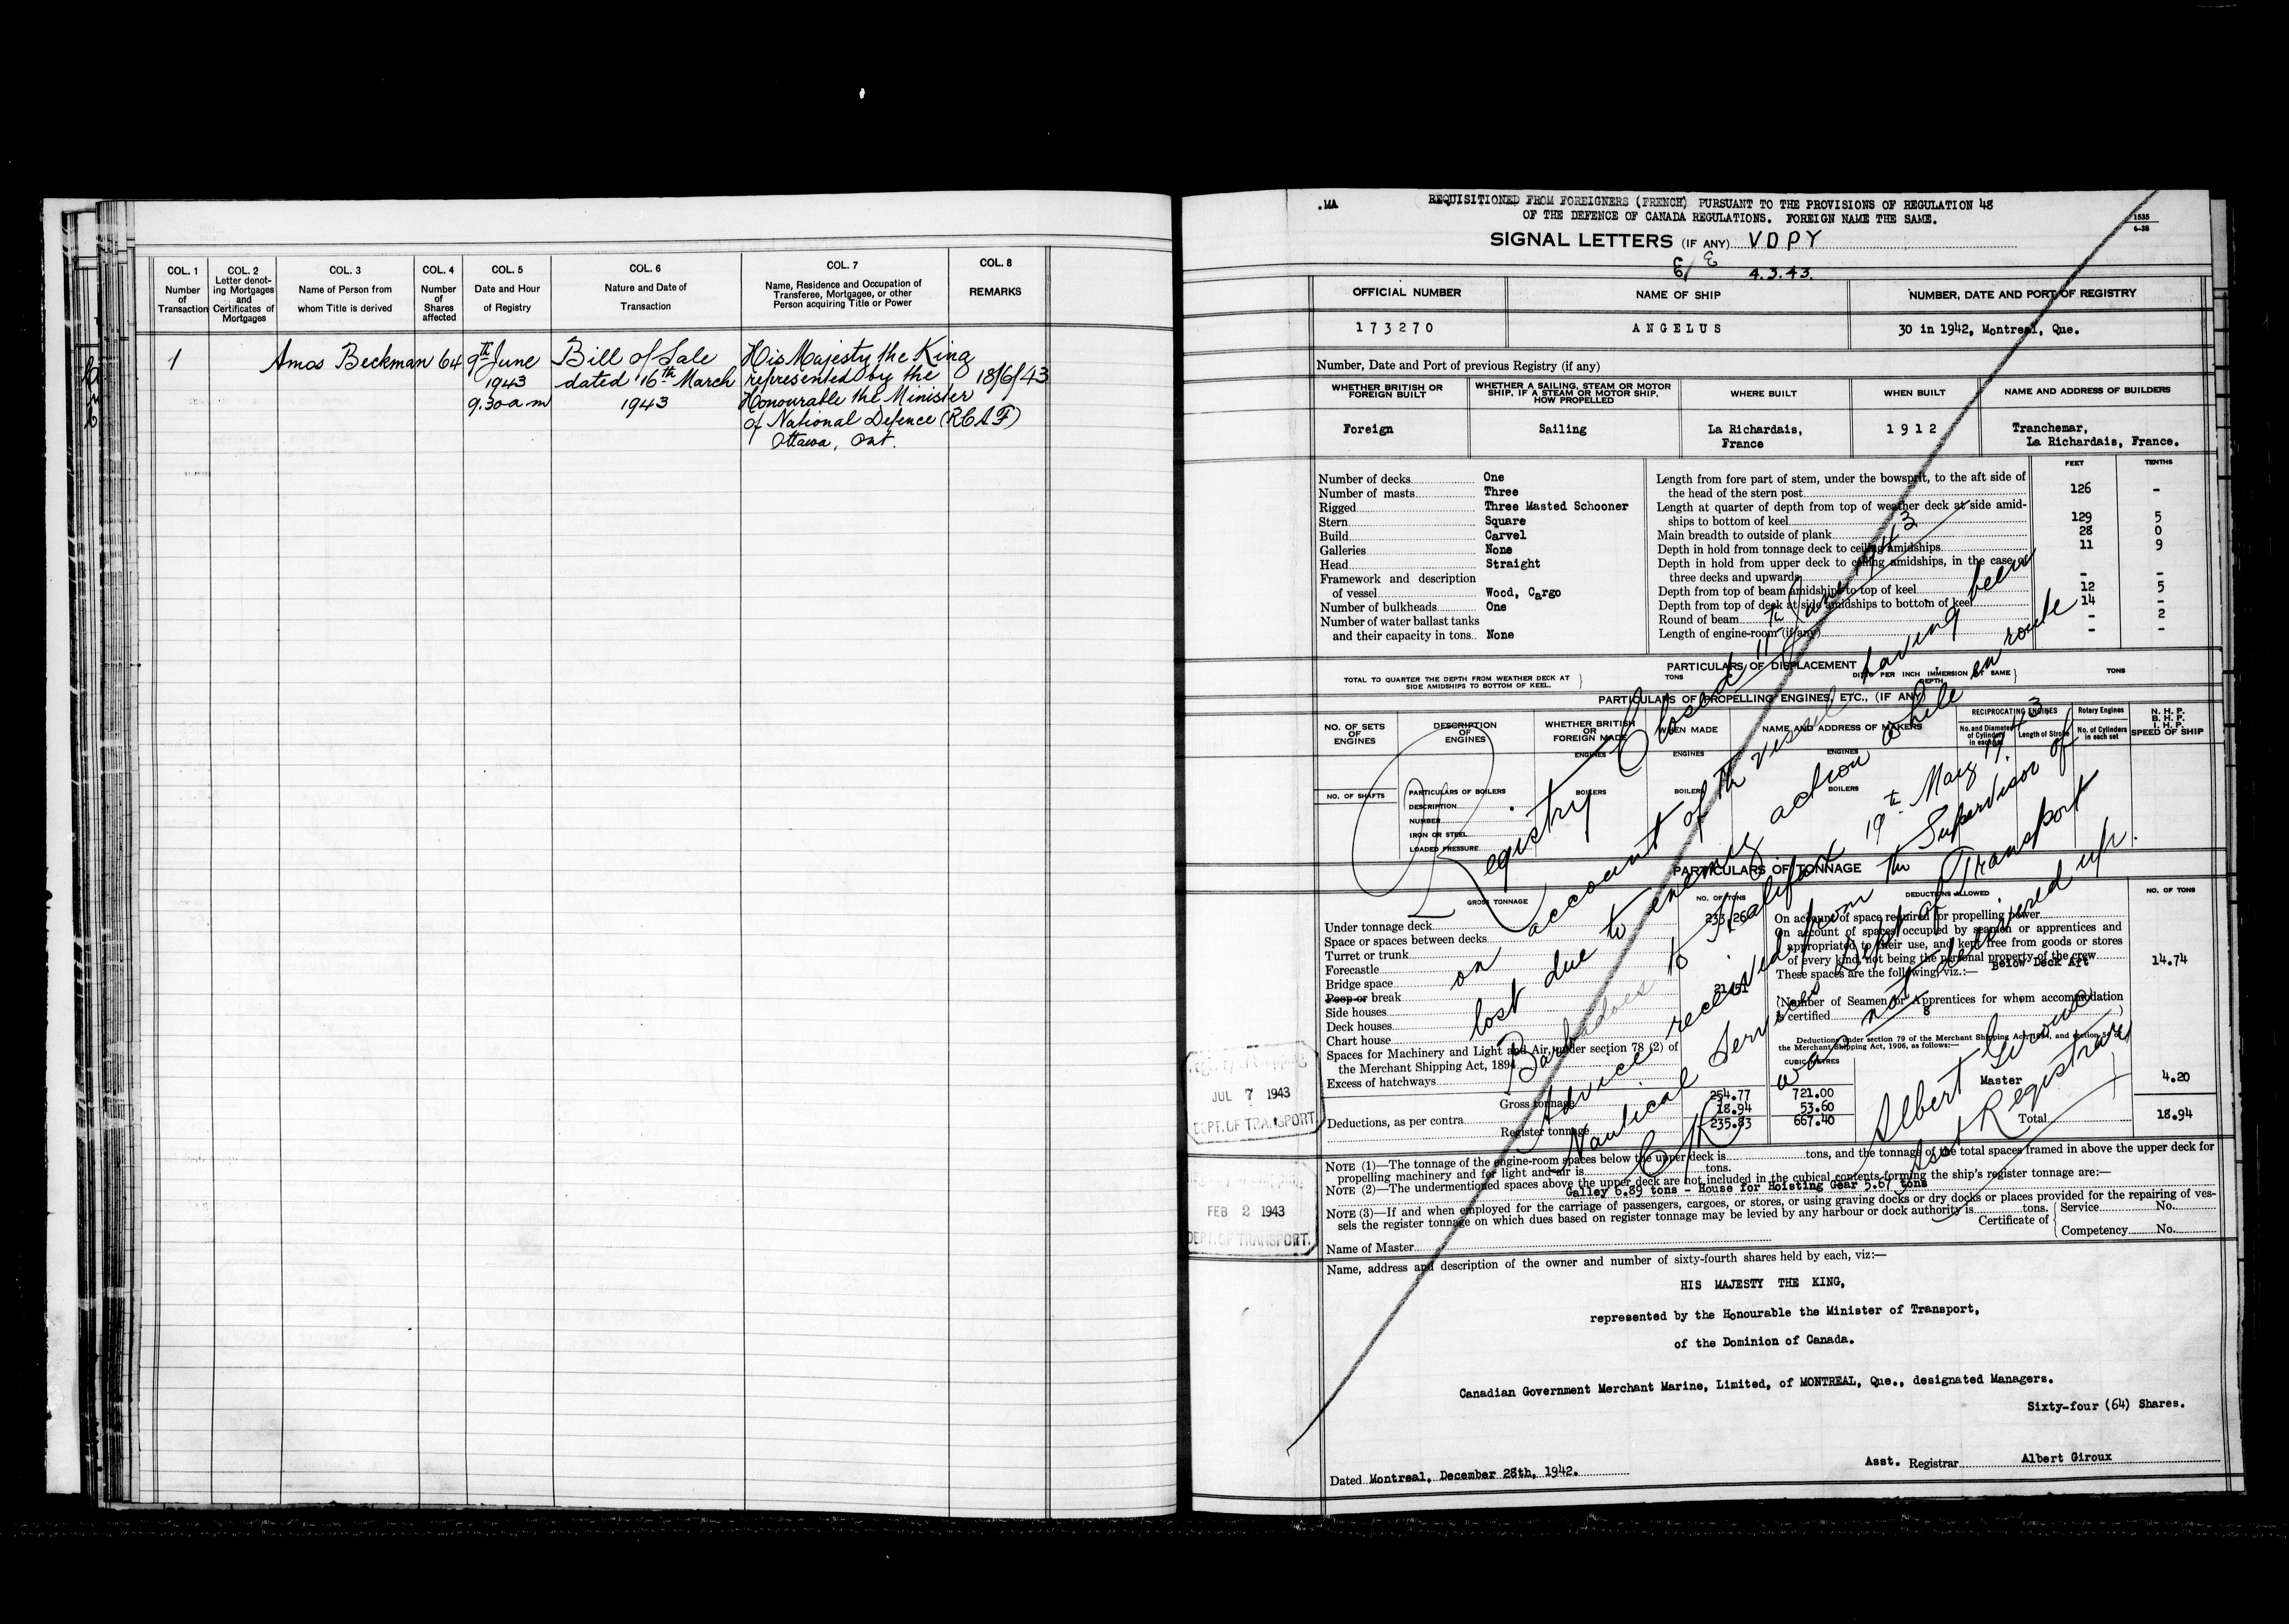 COL. 1
Number
of
Transaction
COL. 2
Letter denot-
ing Mortgages
and
Certificates of
Mortgages
COL. 3
Name of Person from
whom Title is derived
COL. 4
Number
of
Shares
affected
COL. 5
Date and Hour
of Registry
COL. 6
Nature and Date of
Transaction
COL. 7
Name, Residence and Occupation of
Transferee, Mortgagee, or other
Person acquiring Title or Power
COL. 8
REMARKS
1
Amos Beckman
64
9th June
1943
9.30 a m
Bill of Sale
dated 16th March
1943
His Majesty the King
represented by the
Honourable the Minister
of National Defence (RCAF)
Ottawa, Ont.
18/6/43
.MA
REQUISITIONED FROM FOREIGNERS (FRENCH) PURSUANT TO THE PROVISIONS OF REGULATION 48
OF THE DEFENCE OF CANADA REGULATIONS. FOREIGN NAME THE SAME.
1535
6-38
SIGNAL LETTERS (IF ANY) VDPY
4.3.43.
OFFICIAL NUMBER
NAME OF SHIP
NUMBER, DATE AND PORT OF REGISTRY
173270
ANGELUS
30 in 1942, Montreal, Que.
Number, Date and Port of previous Registry (if any)
WHETHER BRITISH OR
FOREIGN BUILT
WHETHER A SAILING, STEAM OR MOTOR
SHIP. IF A STEAM OR MOTOR SHIP,
HOW PROPELLED
WHERE BUILT
WHEN BUILT
NAME AND ADDRESS OF BUILDERS
Foreign
Sailing
La Richardais,
France
1912
Tranchemar,
La Richardais, France.
FEET
TENTHS
Number of decks One
Number of masts Three
Rigged Three Masted Schooner
Stern Square
Build Carvel
Galleries None
Head Straight
Framework and description
of vessel Wood, Cargo
Number of bulkheads One
Number of water ballast tanks
and their capacity in tons None
Length from fore part of stem, under the bowsprit, to the aft side of
the head of the stern post 126 -
Length at quarter of depth from top of weather deck at side amid-
ships to bottom of keel 129 5
Main breadth to outside of plank 28 0
Depth in hold from tonnage deck to ceiling amidships 11 9
Depth in hold from upper deck to ceiling amidships, in the case of
three decks and upwards - -
Depth from top of beam amidships to top of keel 12 5
Depth from top of deck at side amidships to bottom of keel 14 -
Round of beam - 2
Length of engine-room (if any) - -
PARTICULARS OF DISPLACEMENT
TOTAL TO QUARTER THE DEPTH FROM WEATHER DECK AT
SIDE AMIDSHIPS TO BOTTOM OF KEEL.
TONS
DITTO PER INCH IMMERSION AT SAME
DEPTH
TONS
PARTICULARS OF PROPELLING ENGINES, ETC., (IF ANY)
NO. OF SETS
OF
ENGINES
DESCRIPTION
OF
ENGINES
WHETHER BRITISH
OR
FOREIGN MADE
WHEN MADE
NAME AND ADDRESS OF MAKERS
RECIPROCATING ENGINES
No. and Diameter
of Cylinders
in each set
Length of Stroke
Rotary Engines
No. of Cylinders
in each set
N. H. P.
B. H. P.
I. H. P.
SPEED OF SHIP
ENGINES
ENGINES
ENGINES
NO. OF SHAFTS
PARTICULARS OF BOILERS
DESCRIPTION
NUMBER
IRON OR STEEL
LOADED PRESSURE
BOILERS
BOILERS
BOILERS
Registry Closed 11th June 1943
on account of the vessel having been
lost due to enemy action while en route
Barbadoes to Halifax 19th May 1943
Advice received from the Supervisor of
Nautical Services Dept of Transport
C R was not delivered up.
Albert Giroux
Asst Registrar
PARTICULARS OF TONNAGE
GROSS TONNAGE
NO. OF TONS
DEDUCTIONS ALLOWED
NO. OF TONS
Under tonnage deck 233.26
Space or spaces between decks
Turret or trunk
Forecastle
Bridge space
Poop or break 21.51
Side houses
Deck houses
Chart house
Spaces for Machinery and Light and Air, under section 78 (2) of
the Merchant Shipping Act, 1894
Excess of hatchways
Gross tonnage 254.77 721.00
Deductions, as per contra 18.94 53.60
Register tonnage 235.83 667.40
CUBIC METRES
On account of space required for propelling power
On account of spaces occupied by seamen or apprentices and
appropriated to their use, and kept free from goods or stores
of every kind, not being the personal property of the crew
These spaces are the following, viz.:— Below Deck Aft 14.74
(Number of Seamen or Apprentices for whom accommodation
is certified 8 )
Deductions under section 79 of the Merchant Shipping Act, 1894, and section 54 of
the Merchant Shipping Act, 1906, as follows:—
Master 4.20
Total 18.94
JUL 7 1943
DEPT. OF TRANSPORT
FEB 2 1943
DEPT. OF TRANSPORT.
NOTE (1)—The tonnage of the engine-room spaces below the upper deck is tons, and the tonnage of the total spaces framed in above the upper deck for
propelling machinery and for light and air is tons.
NOTE (2)—The undermentioned spaces above the upper deck are not included in the cubical contents forming the ship's register tonnage are:—
Galley 6.89 tons - House for Hoisting Gear 5.67 tons
NOTE (3)—If and when employed for the carriage of passengers, cargoes, or stores, or using graving docks or dry docks or places provided for the repairing of ves-
sels the register tonnage on which dues based on register tonnage may be levied by any harbour or dock authority is tons.
Name of Master
Certificate of
Service No.
Competency No.
Name, address and description of the owner and number of sixty-fourth shares held by each, viz:—
HIS MAJESTY THE KING,
represented by the Honourable the Minister of Transport,
of the Dominion of Canada.
Canadian Government Merchant Marine, Limited, of MONTREAL, Que., designated Managers.
Sixty-four (64) Shares.
Dated Montreal, December 28th, 1942.
Asst. Registrar Albert Giroux